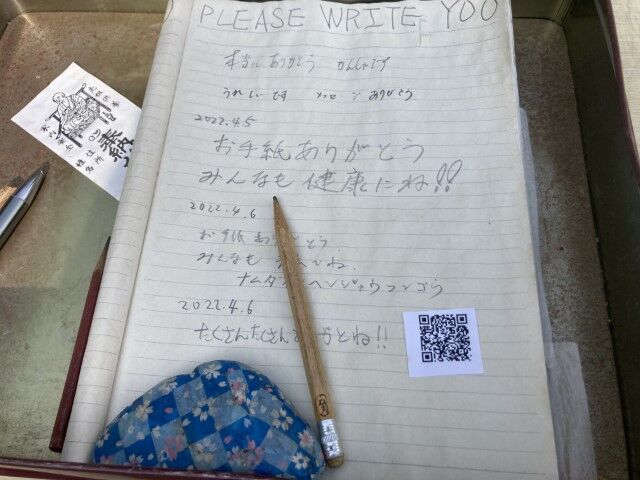 PLEASE WRITE YOO
本当に ありがとう かんしゃです
うれしいです ありがとう
2022.4.5
お手紙ありがとう
みんなも健康にね!!
2022.4.6
お手紙ありがとう
みんなも ね.
ヘンジョウコンゴウ
2022.4.6
たくさんたくさん がとね!!
家内安全
奉納